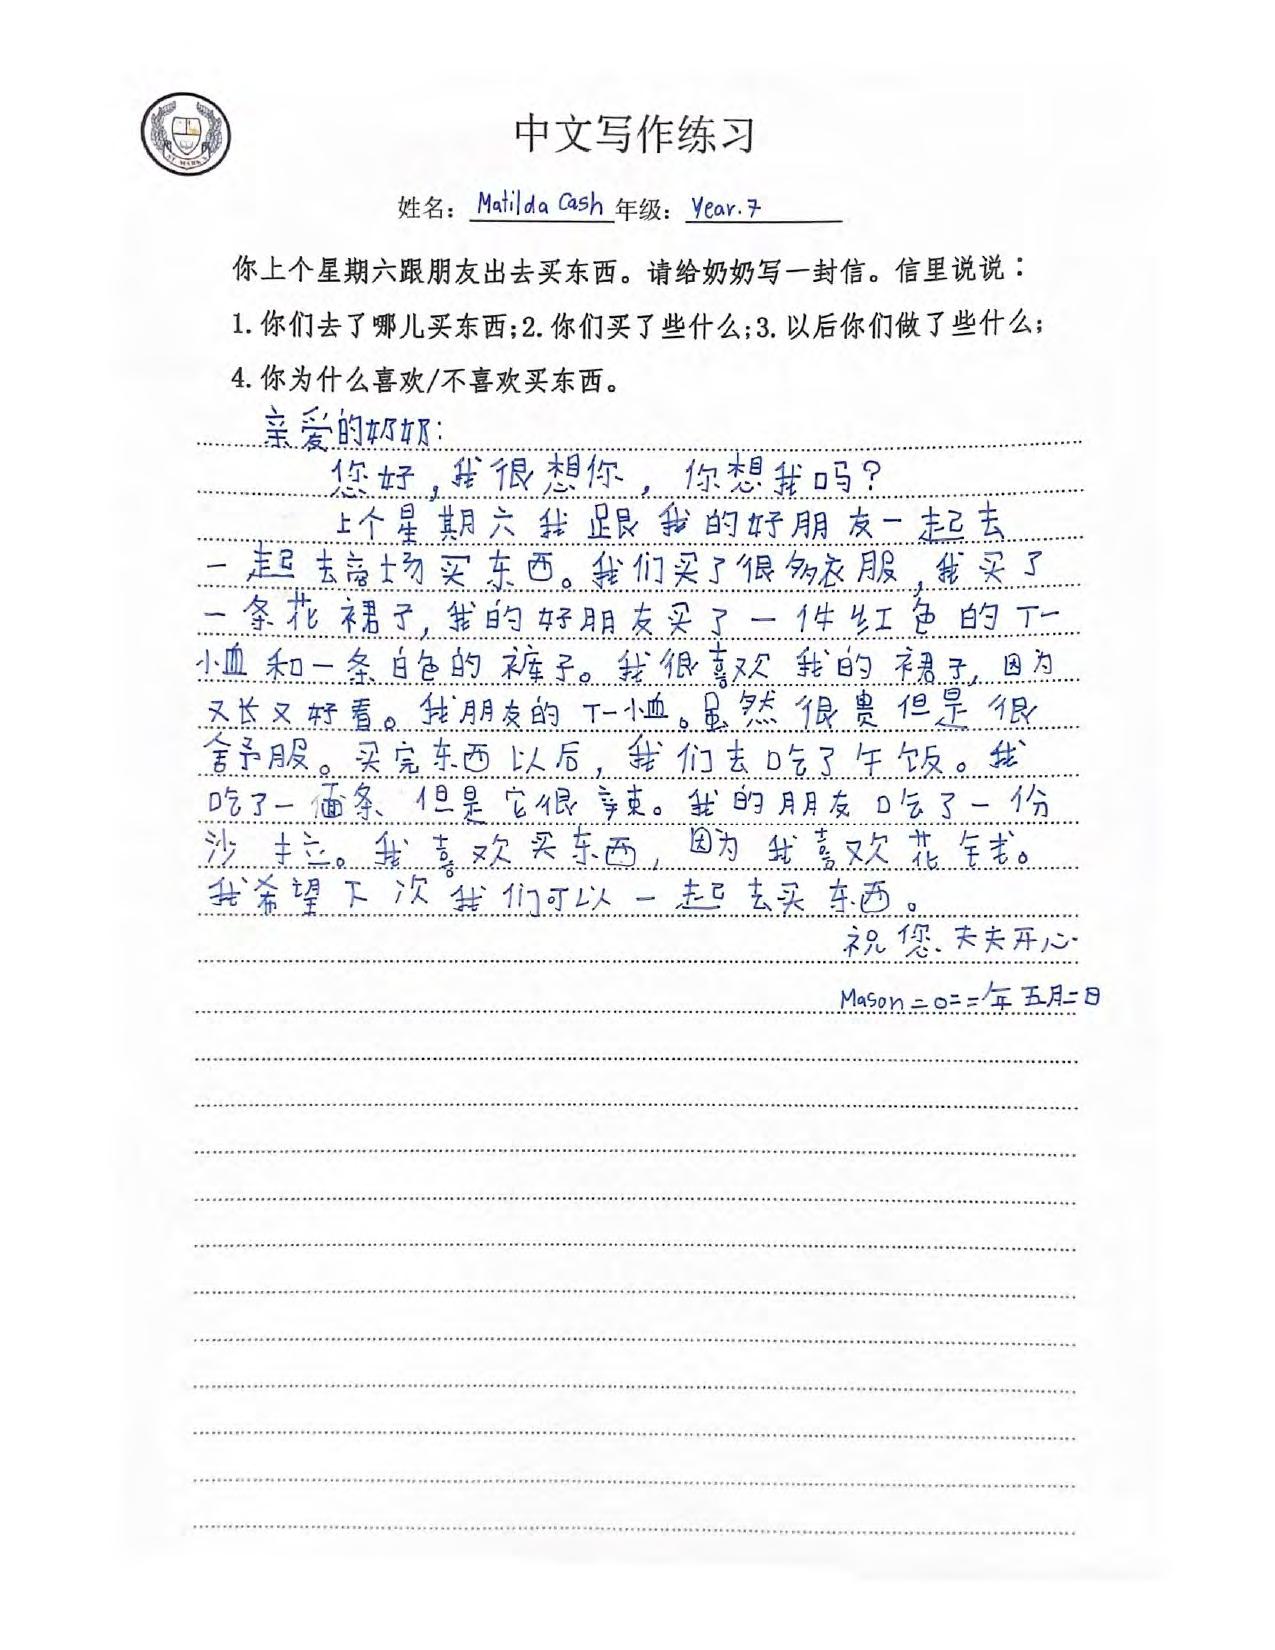 中文写作练习
姓名：Matilda Cash 年级：Year.7
你上个星期六跟朋友出去买东西。请给奶奶写一封信。信里说说：
1.你们去了哪儿买东西;2.你们买了些什么;3.以后你们做了些什么;
4.你为什么喜欢/不喜欢买东西。
亲爱的奶奶:
您好,我很想你,你想我吗?
上个星期六我跟我的好朋友一起去
一起去商场买东西。我们买了很多衣服,我买了
一条花裙子,我的好朋友买了一件红色的T一
小血和一条白色的裤子。我很喜欢我的裙子,因为
又长又好看。我朋友的T一小血。虽然很贵但是很
舍予服。买完东西以后,我们去吃了午饭。我
吃了一面条、但是它很辛束。我的朋友吃了一份
沙拉。我喜欢买东西,因为我喜欢花钱。
我希望下次我们可以一起去买东西。
祝您、夫夫开心
Mason二〇二二年五月二日